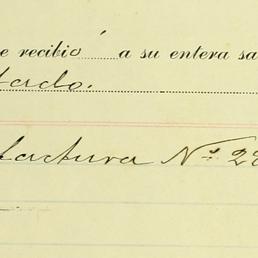 e recibió a su entera sa
tado.
factura Nº 22